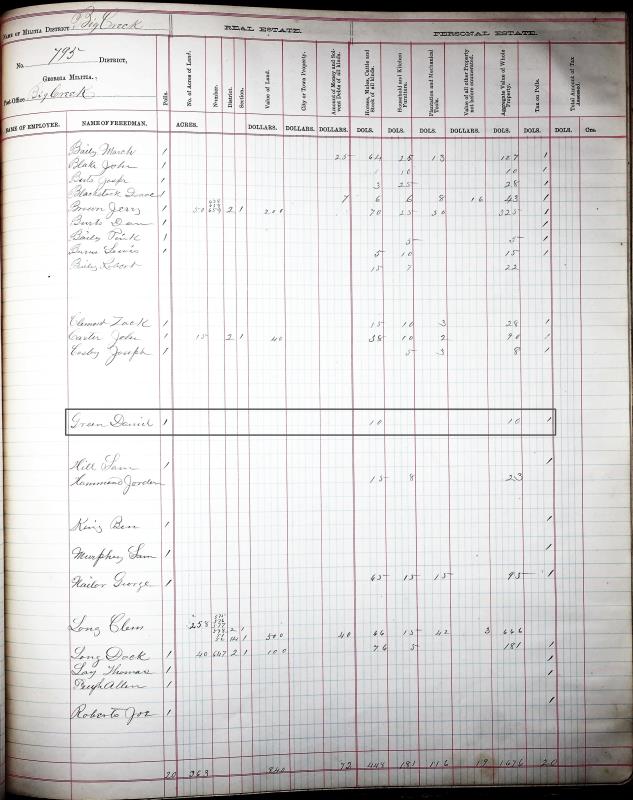 NAME OF MILITIA DISTRICT, Big Creek
No. 795 DISTRICT,
GEORGIA MILITIA.
Post Office, Big Creek
REAL ESTATE.
PERSONAL ESTATE.
Polls.
No. of Acres of Land.
Number.
District.
Section.
Value of Land.
City or Town Property.
Amount of Money and Solvent Debts of all kinds.
Horses, Mules, Cattle and Stock of all kinds.
Household and Kitchen Furniture.
Plantation and Mechanical Tools.
Value of all other Property not before enumerated.
Aggregate Value of Whole Property.
Tax on Polls.
Total Amount of Tax Assessed.
NAME OF EMPLOYER. NAME OF FREEDMAN. ACRES. DOLLARS. DOLLARS. DOLLARS. DOLS. DOLS. DOLS. DOLLARS. DOLS. DOLS. DOLS. Cts.
Baily March 1 25 64 25 13 107 1
Blake John 1 10 10 1
Joseph 1 3 25 28 1
Blackstock 1 7 6 6 8 16 43 1
Brown Jerry 1 50 2 1 200 70 25 30 325 1
Burts Dan 1 1
Baily 1 5 5 1
Burns Lewis 1 5 10 15 1
Baily Robert 15 7 22
Clemont Zack 1 15 10 3 28 1
Carter John 1 15 2 1 40 38 10 2 90 1
Cosby Joseph 1 5 3 8 1
Green Daniel 1 10 10 1
Hill Sam 1 1
Hammond Jorden 15 8 23
King Ben 1 1
Murphey Sam 1 1
Nailor George 1 65 15 15 95 1
Long Clem 258 2 1 500 40 66 15 42 3 666
Long Dock 1 40 647 2 1 100 76 5 181 1
Lay Thomas 1 1
Pugh Allen 1
Roberts Joe 1 1
20 363 840 72 448 181 116 19 1676 20